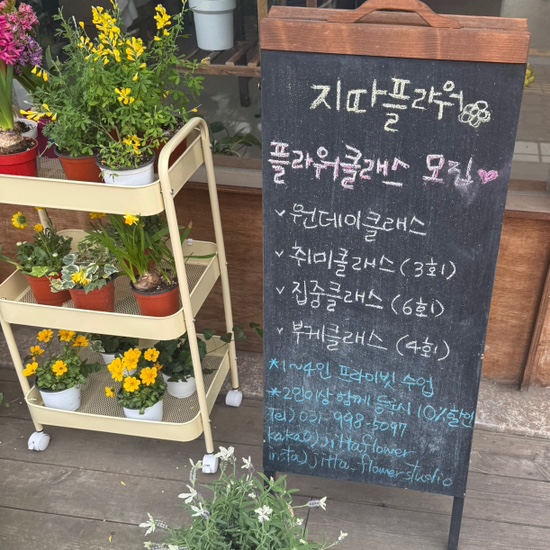 지따플라워
플라워클래스 모집
원데이클래스
취미클래스 (3회)
집중클래스 (6회)
부케클래스 (4회)
*1~4인 프라이빗 수업
*2인이상 함께 등록시 10% 할인
tel) 031-998-5097
kakao) jittaflower
insta) jitta.flowerstudio